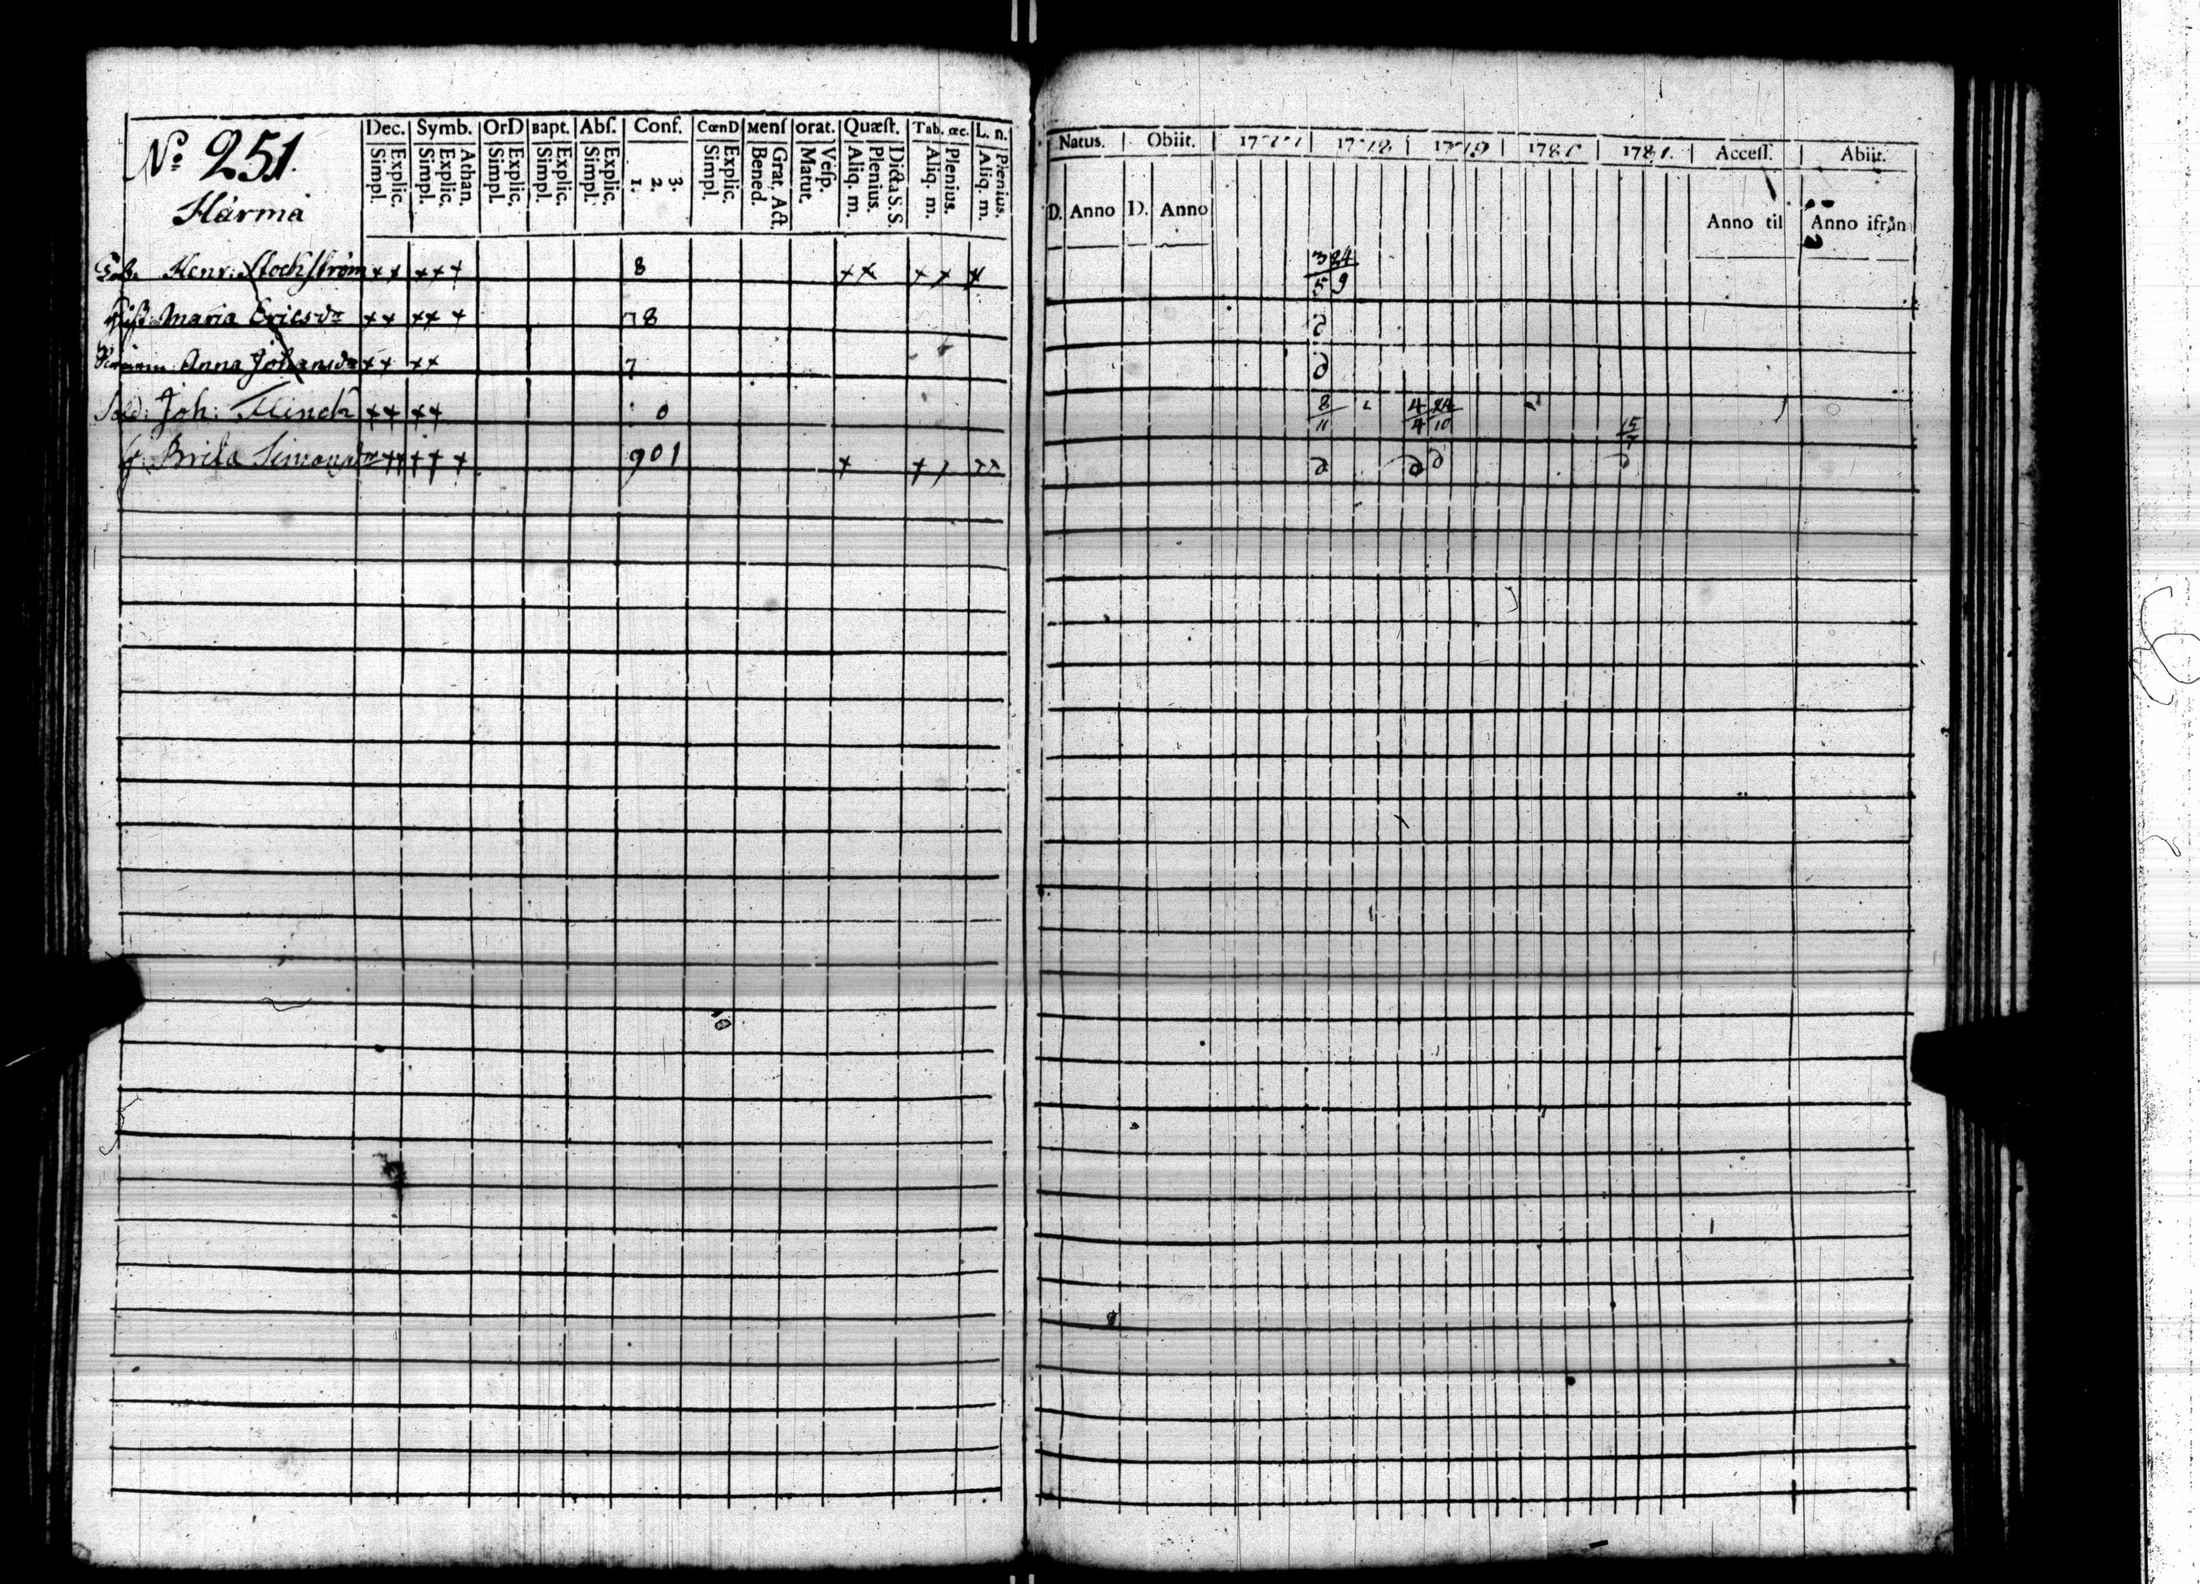 Nº 251.
Härmä
Dec. Symb. OrD Bapt. Abs. Conf. CœnD Mens orat. Quæst. Tab. œc. L. n.
Simpl. Explic. Simpl. Explic. Athan. Simpl. Explic. Simpl. Explic. Simpl. Explic. 1. 2. 3. Simpl. Explic. Bened. Grat. Act. Matut. Vesp. Aliq. m. Plenius. Dicta S. S. Aliq. m. Plenius. Aliq. m. Plenius.
Henr: Stockström ++ +++ 8 ++ ++ +
Maria Ericsdr ++ +++ 78
Anna Johansdr ++ ++ 7
Sold: Joh: Flinck ++ ++ 0
h. Brita Simonsdr ++ +++ 901 + ++ ++
Natus. Obiit. 1777 1778 1779 1780 1781. Access. Abiit.
D. Anno D. Anno Anno til Anno ifrån
3/5 24/9
d
d
8/11 4/4 24/10 15/7
d d d d